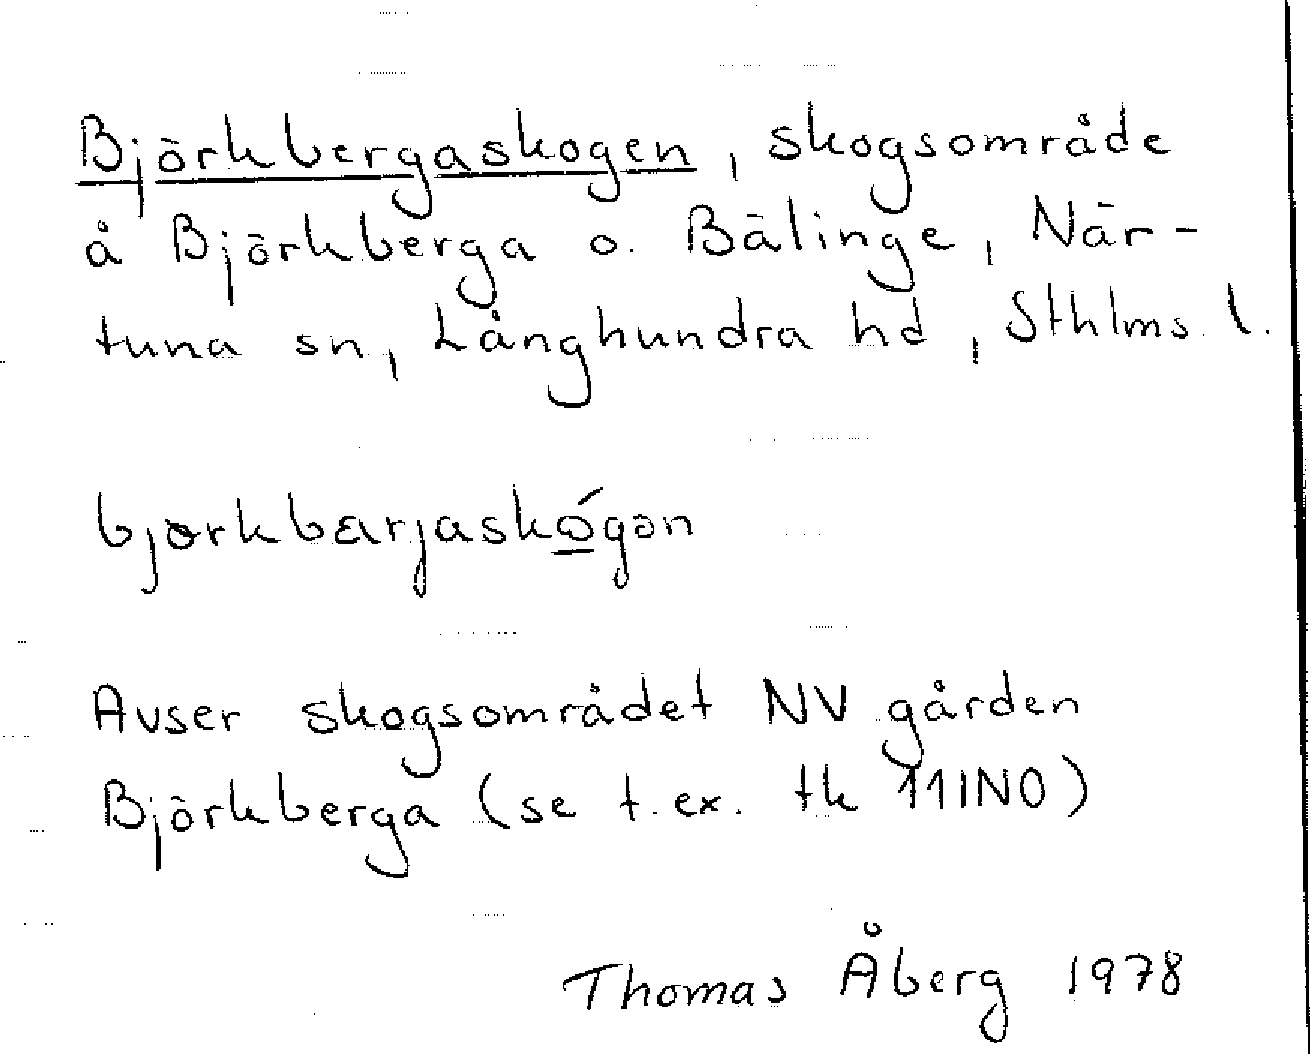 Björkbergaskogen, skogsområde
å Björkberga o. Bälinge, När-
tuna sn, Långhundra hd, Sthlms l.
bjɵrkbærjaskógən
Avser skogsområdet NV gården
Björkberga (se t.ex. tk 11INO)
Thomas Åberg 1978